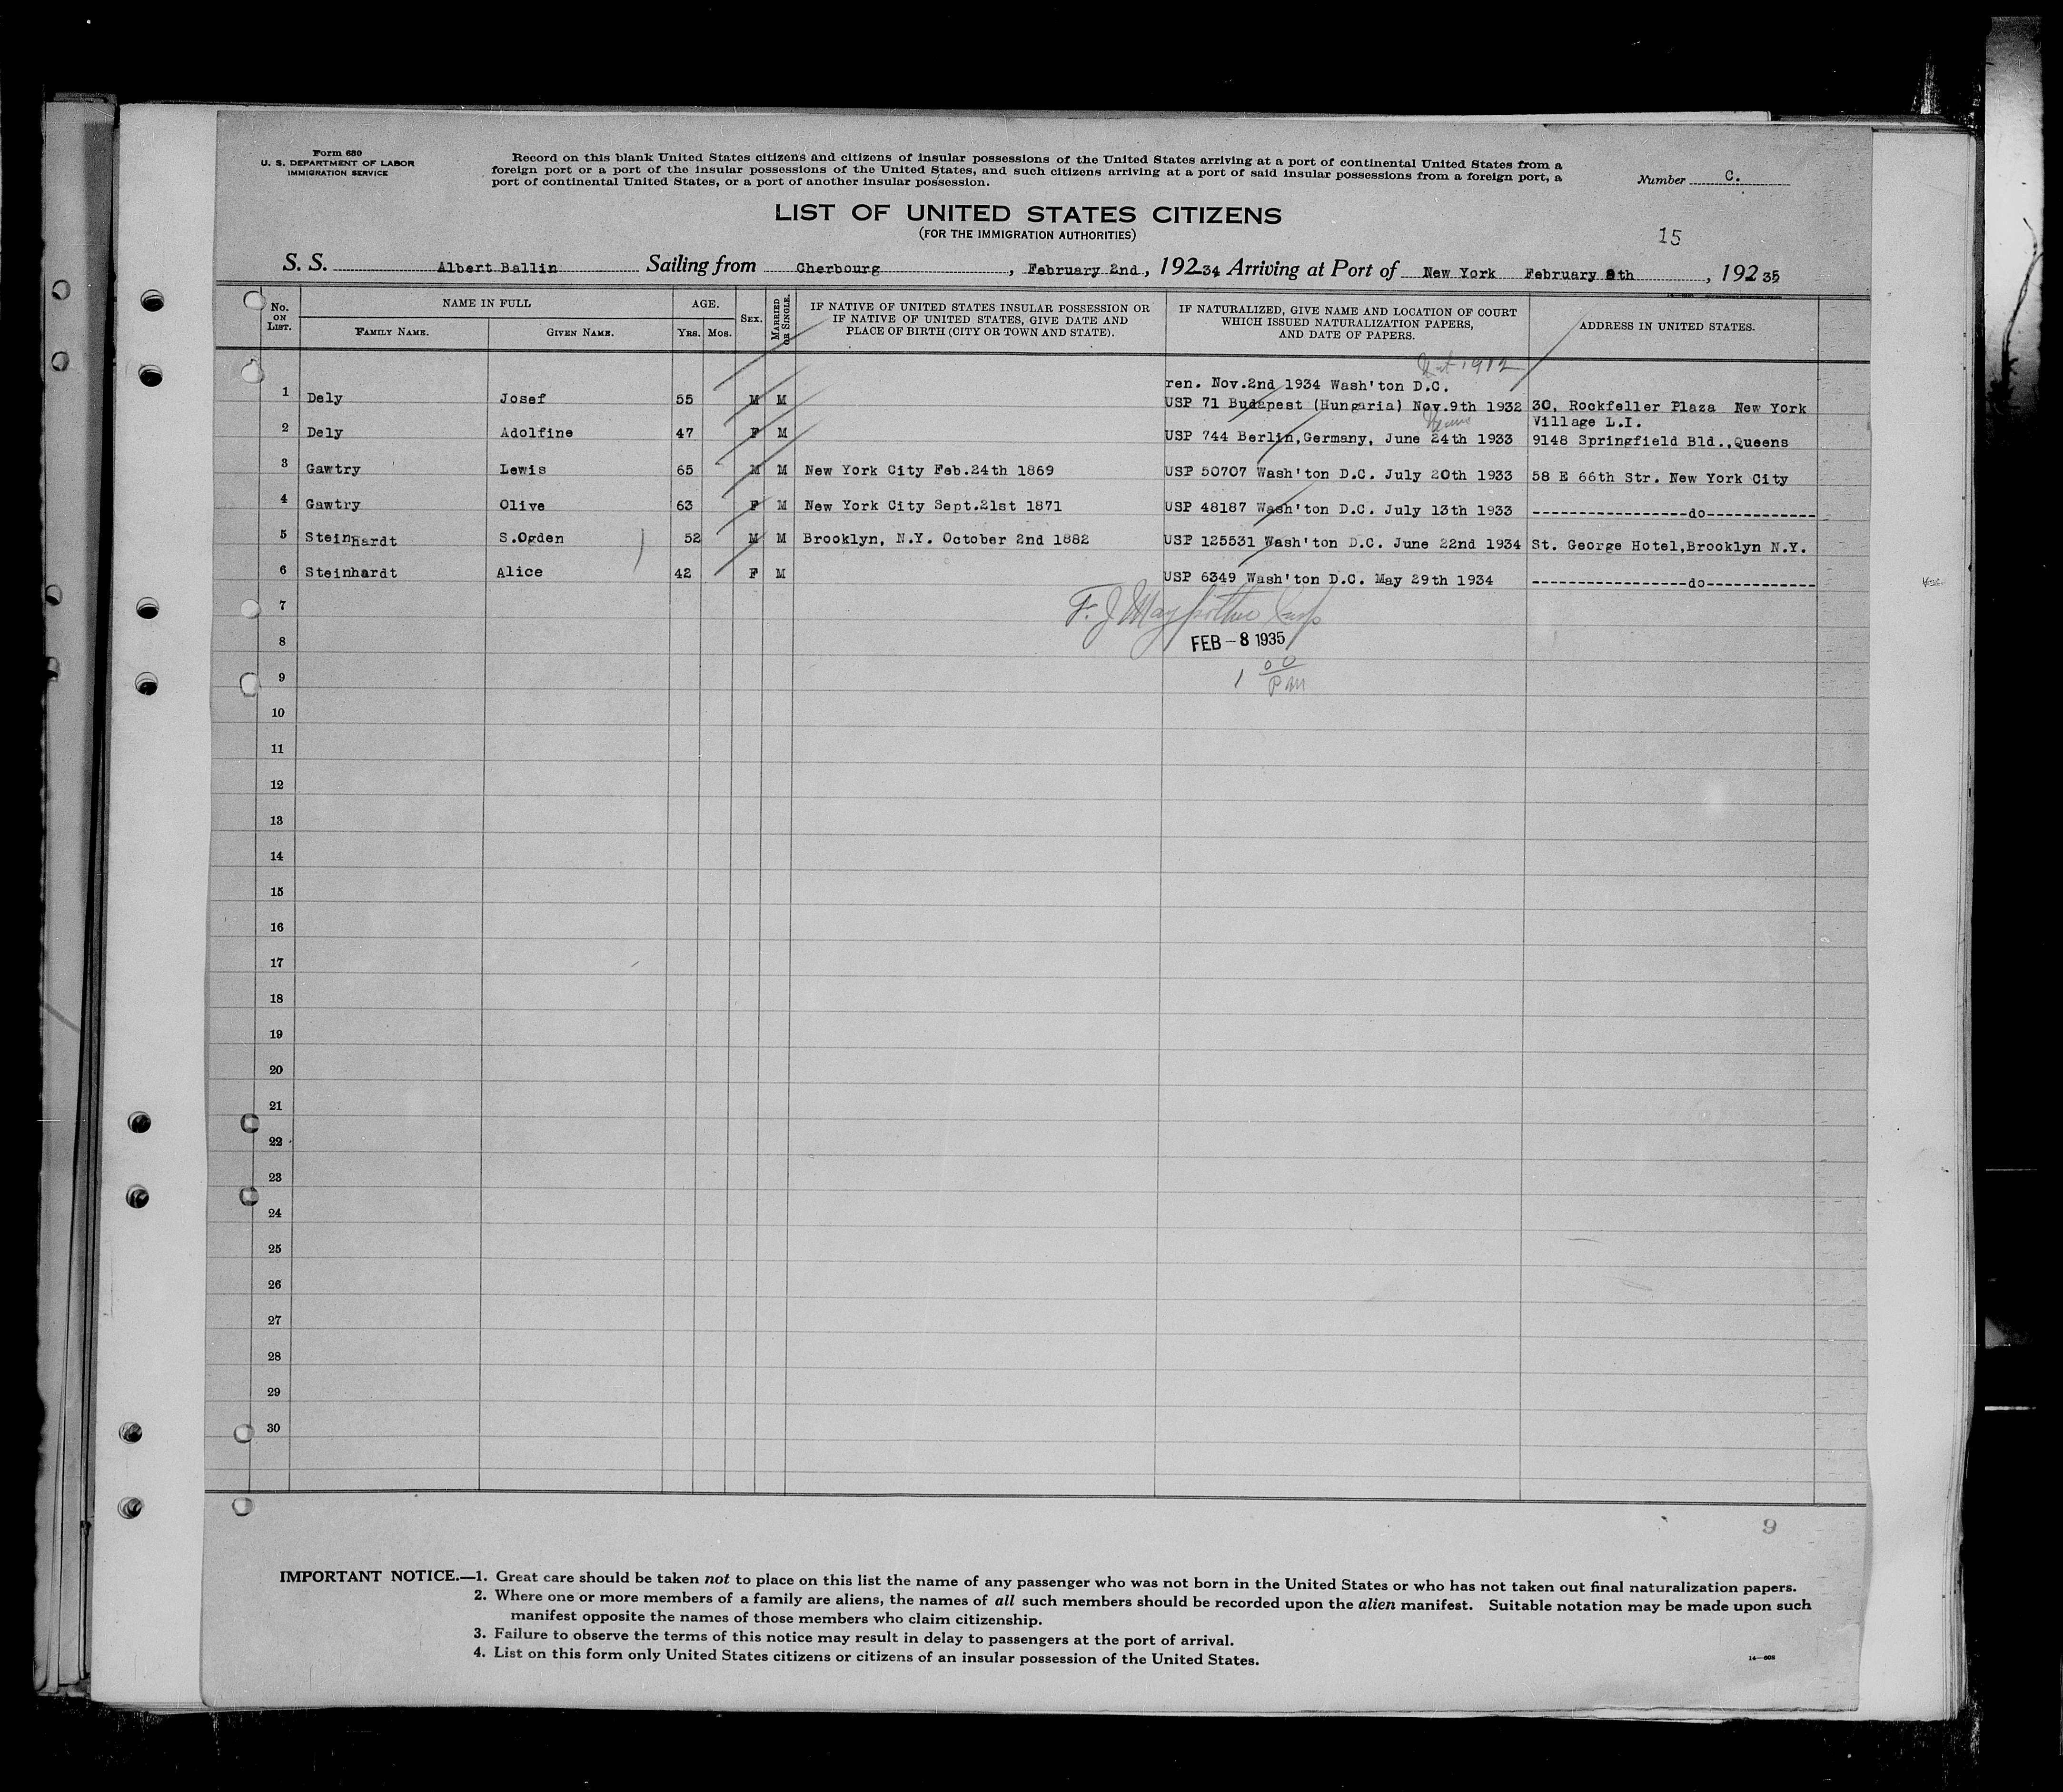 Form 680
U. S. DEPARTMENT OF LABOR
IMMIGRATION SERVICE
Record on this blank United States citizens and citizens of insular possessions of the United States arriving at a port of continental United States from a
foreign port or a port of the insular possessions of the United States, and such citizens arriving at a port of said insular possessions from a foreign port, a
port of continental United States, or a port of another insular possession.
Number C.
LIST OF UNITED STATES CITIZENS
(FOR THE IMMIGRATION AUTHORITIES)
15
S. S. Albert Ballin Sailing from Cherbourg, February 2nd, 192 34 Arriving at Port of New York February 8th, 192 35
No. ON LIST. NAME IN FULL FAMILY NAME. GIVEN NAME. AGE. YRS. MOS. SEX. MARRIED OR SINGLE. IF NATIVE OF UNITED STATES INSULAR POSSESSION OR IF NATIVE OF UNITED STATES, GIVE DATE AND PLACE OF BIRTH (CITY OR TOWN AND STATE). IF NATURALIZED, GIVE NAME AND LOCATION OF COURT WHICH ISSUED NATURALIZATION PAPERS, AND DATE OF PAPERS. ADDRESS IN UNITED STATES.
1912
ren. Nov.2nd 1934 Wash'ton D.C.
1 Dely Josef 55 M M USP 71 Budapest (Hungaria) Nov.9th 1932 30, Rockfeller Plaza New York
Village L.I.
2 Dely Adolfine 47 F M USP 744 Berlin,Germany, June 24th 1933 9148 Springfield Bld.,Queens
3 Gawtry Lewis 65 M M New York City Feb.24th 1869 USP 50707 Wash'ton D.C. July 20th 1933 58 E 66th Str. New York City
4 Gawtry Olive 63 F M New York City Sept.21st 1871 USP 48187 Wash'ton D.C. July 13th 1933 -----------------do------------
5 Steinhardt S.Ogden 52 M M Brooklyn, N.Y. October 2nd 1882 USP 125531 Wash'ton D.C. June 22nd 1934 St. George Hotel,Brooklyn N.Y.
6 Steinhardt Alice 42 F M USP 6349 Wash'ton D.C. May 29th 1934 -----------------do------------
7
F. J.
8
FEB - 8 1935
9
1 00 PM
10
11
12
13
14
15
16
17
18
19
20
21
22
23
24
25
26
27
28
29
30
9
IMPORTANT NOTICE.—1. Great care should be taken not to place on this list the name of any passenger who was not born in the United States or who has not taken out final naturalization papers.
2. Where one or more members of a family are aliens, the names of all such members should be recorded upon the alien manifest. Suitable notation may be made upon such
manifest opposite the names of those members who claim citizenship.
3. Failure to observe the terms of this notice may result in delay to passengers at the port of arrival.
4. List on this form only United States citizens or citizens of an insular possession of the United States.